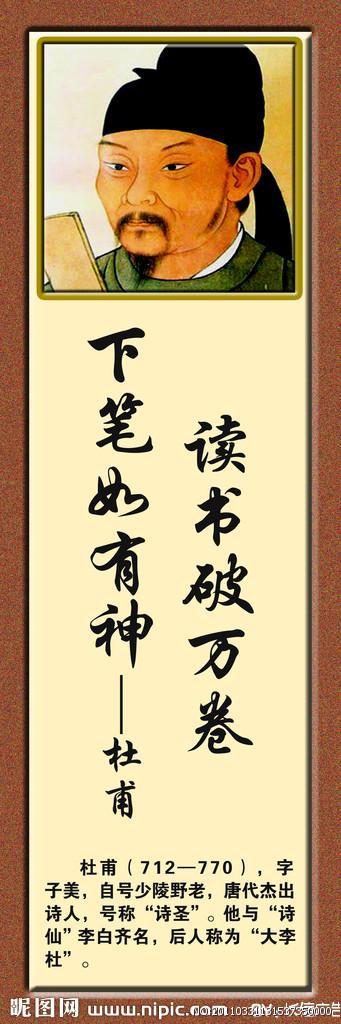 读书破万卷
下笔如有神——杜甫
杜甫（712—770），字
子美，自号少陵野老，唐代杰出
诗人，号称“诗圣”。他与“诗
仙”李白齐名，后人称为“大李
杜”。
昵图网 www.nipic.com